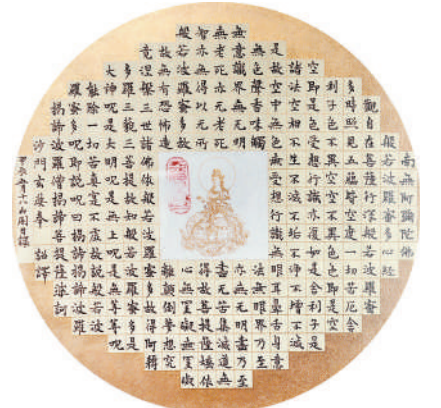 南無阿彌陀佛
般若波羅蜜多心經
觀自在菩薩行深般若波羅蜜
多時照見五蘊皆空度一切苦厄舍
利子色不異空空不異色色即是
空即是色受想行識亦復如是舍利子是
諸法空相不生不滅不垢不淨不增不減
是故空中無色無受想行識無眼耳鼻舌身意
無色聲香味觸法無眼界乃至
無意識界無無明亦無無明盡乃至
無老死亦無老死盡無苦集滅道無
智亦無得以無所得故菩提薩埵依
般若波羅蜜多故心無罣礙無罣礙
故無有恐怖遠離顛倒夢想究
竟涅槃三世諸佛依般若波羅蜜多故得阿耨
多羅三藐三菩提故知般若波羅蜜多是
大神呪是大明呪是無上呪是無等等呪
能除一切苦真實不虛故說般若波
羅蜜多呪即說呪曰揭諦揭諦波羅
揭諦波羅僧揭諦菩提薩婆訶
沙門玄奘奉 詔譯
甲辰年六月